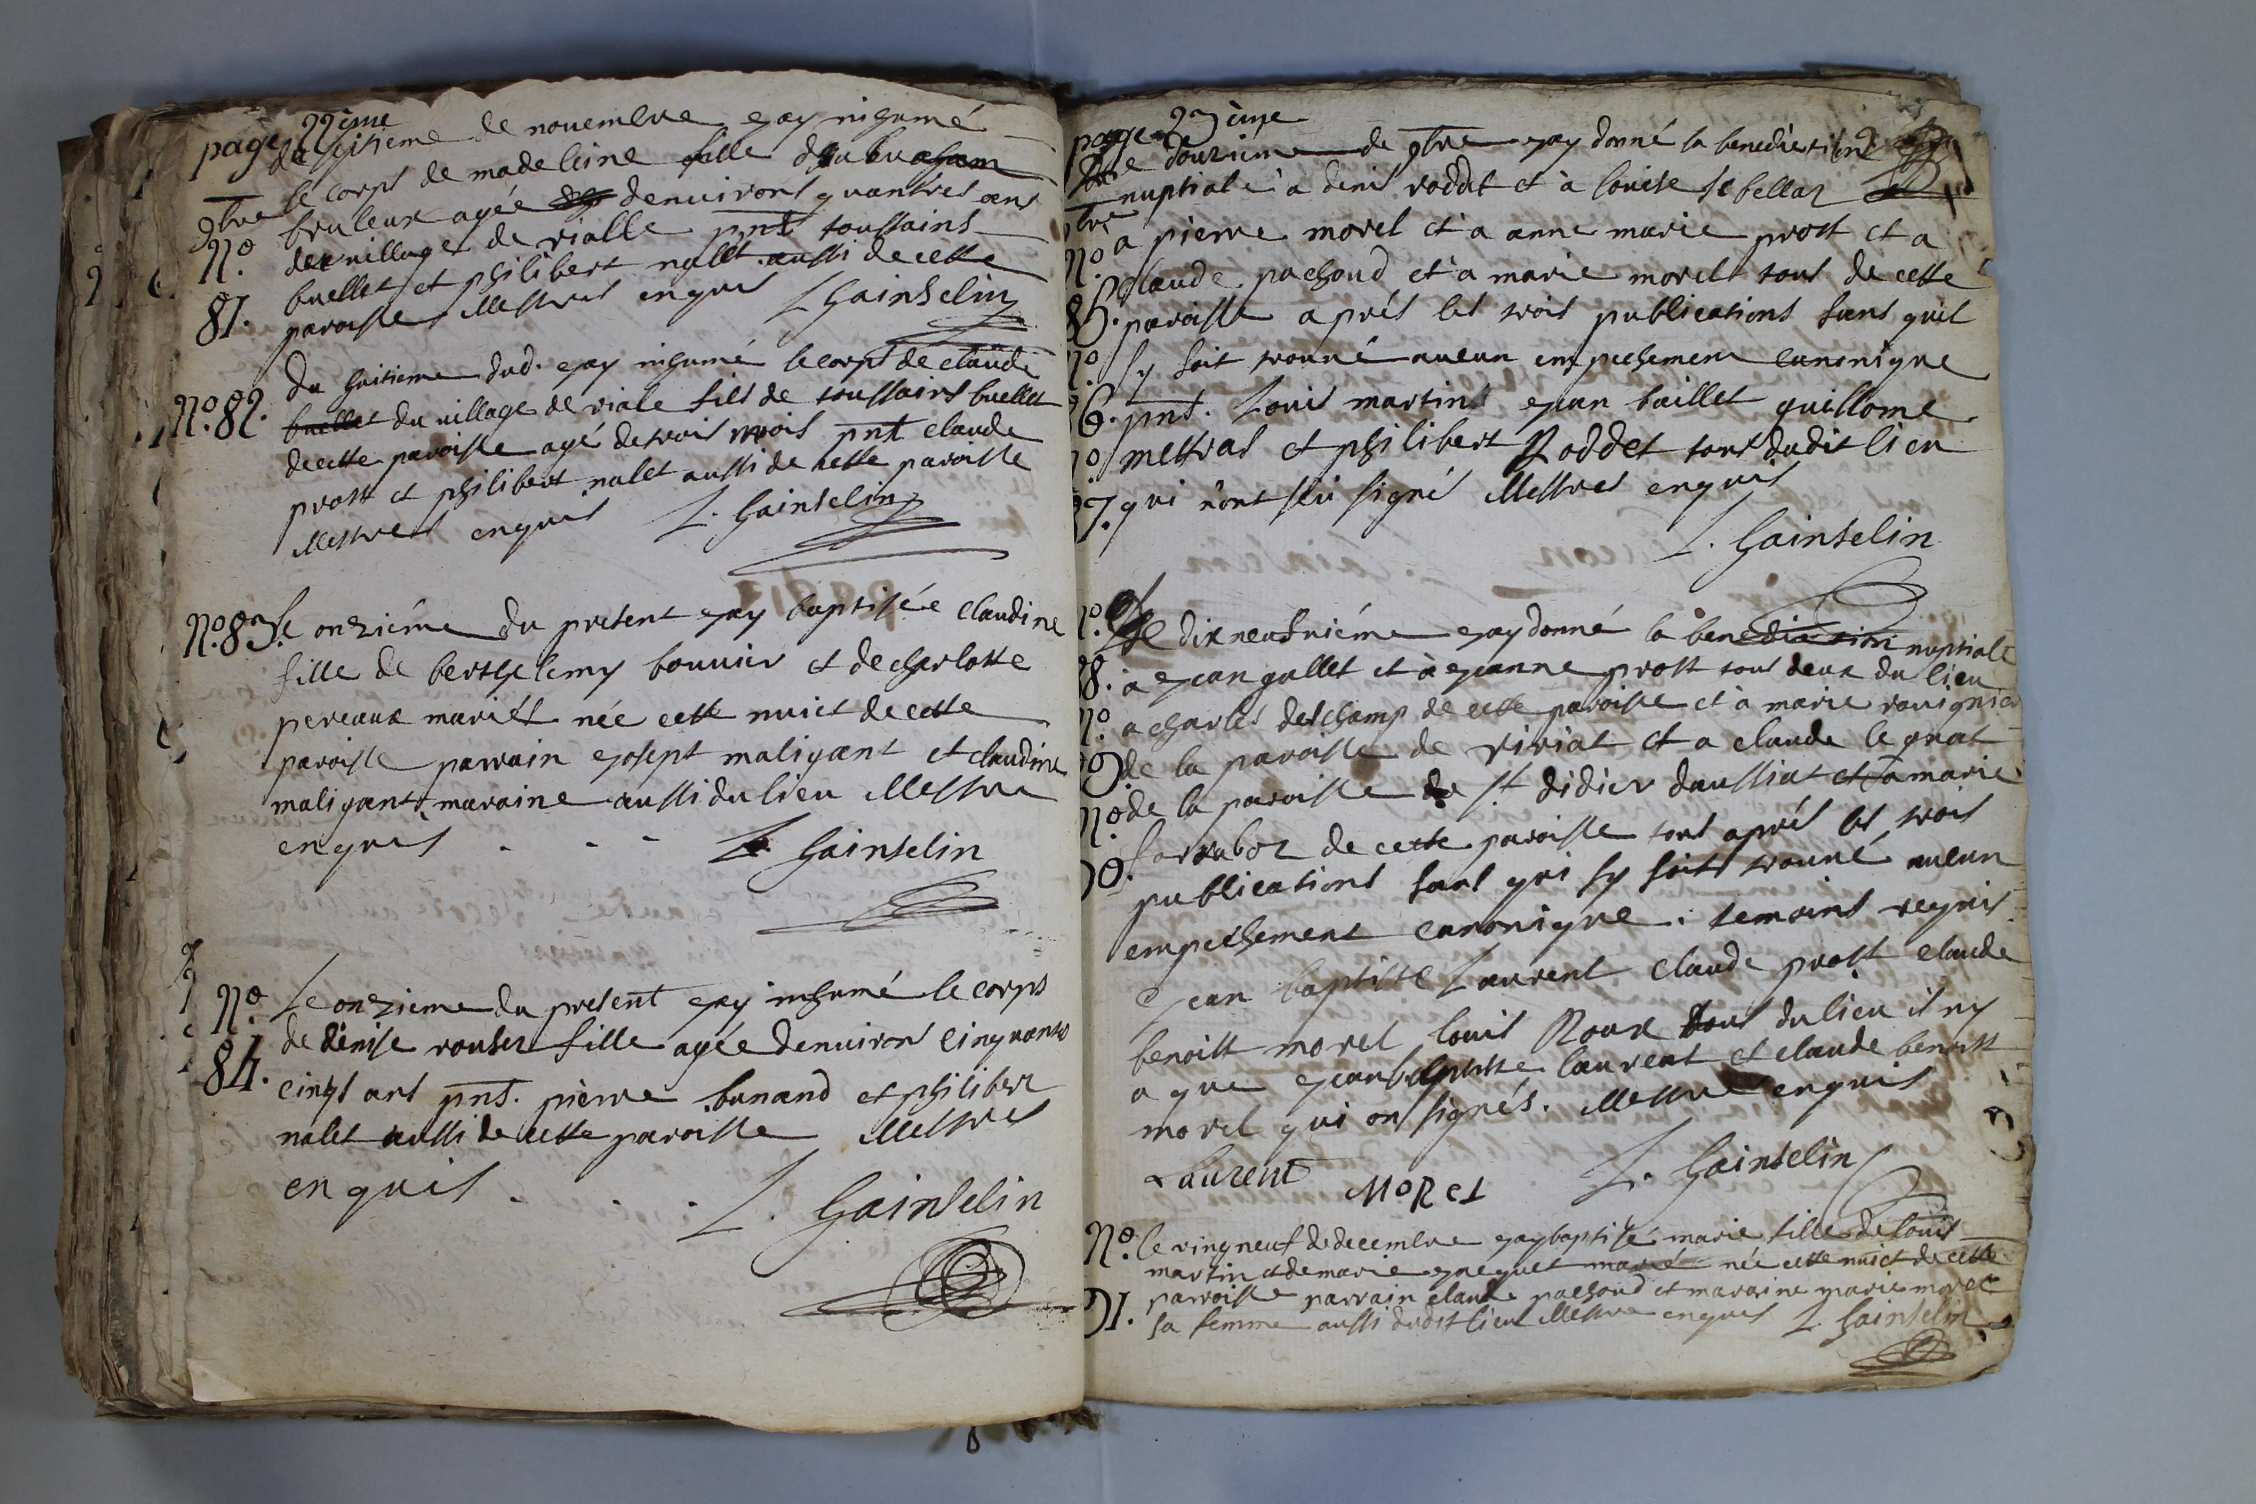 page 22ème
du sisieme de novembre ejay inhumé
9bre le corps de madeleine fille d'abraham
No. bruleux agée denvirons quantres ans
81. du village de rialle pnt toussains
buellet et philibert nalet aussi de cette
paroisse Messires enquis L Gainselin
Du huitieme dud. ejay inhumé le corps de claude
No. 82. buellet du village de riale fils de toussains buellet
de cette paroisse agé de trois mois pnt claude
prost et philibert nalet aussi de cette paroisse
Messires enquis L. Gainselin
No. 83. Le onziéme du present ejay baptisée claudine
fille de berthelemy bouvier et de charlotte
pereaux mariés née cette nuict de cette
paroisse parrain ejosept maliqant et claudine
maliqant maraine aussi du lieu Messire
enquis L. Gainselin
No. Le onzieme du present ejay inhumé le corps
de denise fille agée denvirons cinquantes
84. cinqt ans pnt. pierre bunand et philibert
nalet aussi de cette paroisse Messires
enquis L. Gainselin
page 23ème
Le douzieme de 9bre ejay donné la benediction
nuptiale à denis roddet et à louise
9bre
No. a pierre morel et a anne marie prost et a
claude pachoud et a marie morel tous de cette
85. paroisse aprés les trois publications sans quil
No. sy soit trouvé aucun empechement canonique
86. pnt. Louis martins ejean baillet guillome
No. mestras et philibert Roddet tous dudit lieu
87. qui n'ont seu signés Messires enquis
L. Gainselin
No. Le dix neufniéme ejay donné la benediction nuptiale
88. a ejean gallet et à ejeanne prost tous deux du lieu
No. a charles deschamp de cette paroisse et à marie
89. de la paroisse de viriat et a claude le grat
No. de la paroisse de st didier daussiat et a marie
90. de cette paroisse tous aprés les trois
publications sans qui sy soit trouvé aucun
empechement canonique. temoins requis
ejean baptiste Laurent claude prost claude
benoist morel louis Roux tous du lieu il ny
a que ejeanbaptiste laurent et claude benoist
morel qui on signés. Messire enquis
Laurent MoRel L. Gainselin
No. Le vingneuf de decembre ejay baptisé marie fille de louis
martin et de marie mariés née cette nuict de cette
91. parroisse parrain claude pachoud et maraine marie morel
sa femme aussi dudit lieu Messire enquis L. Gainselin